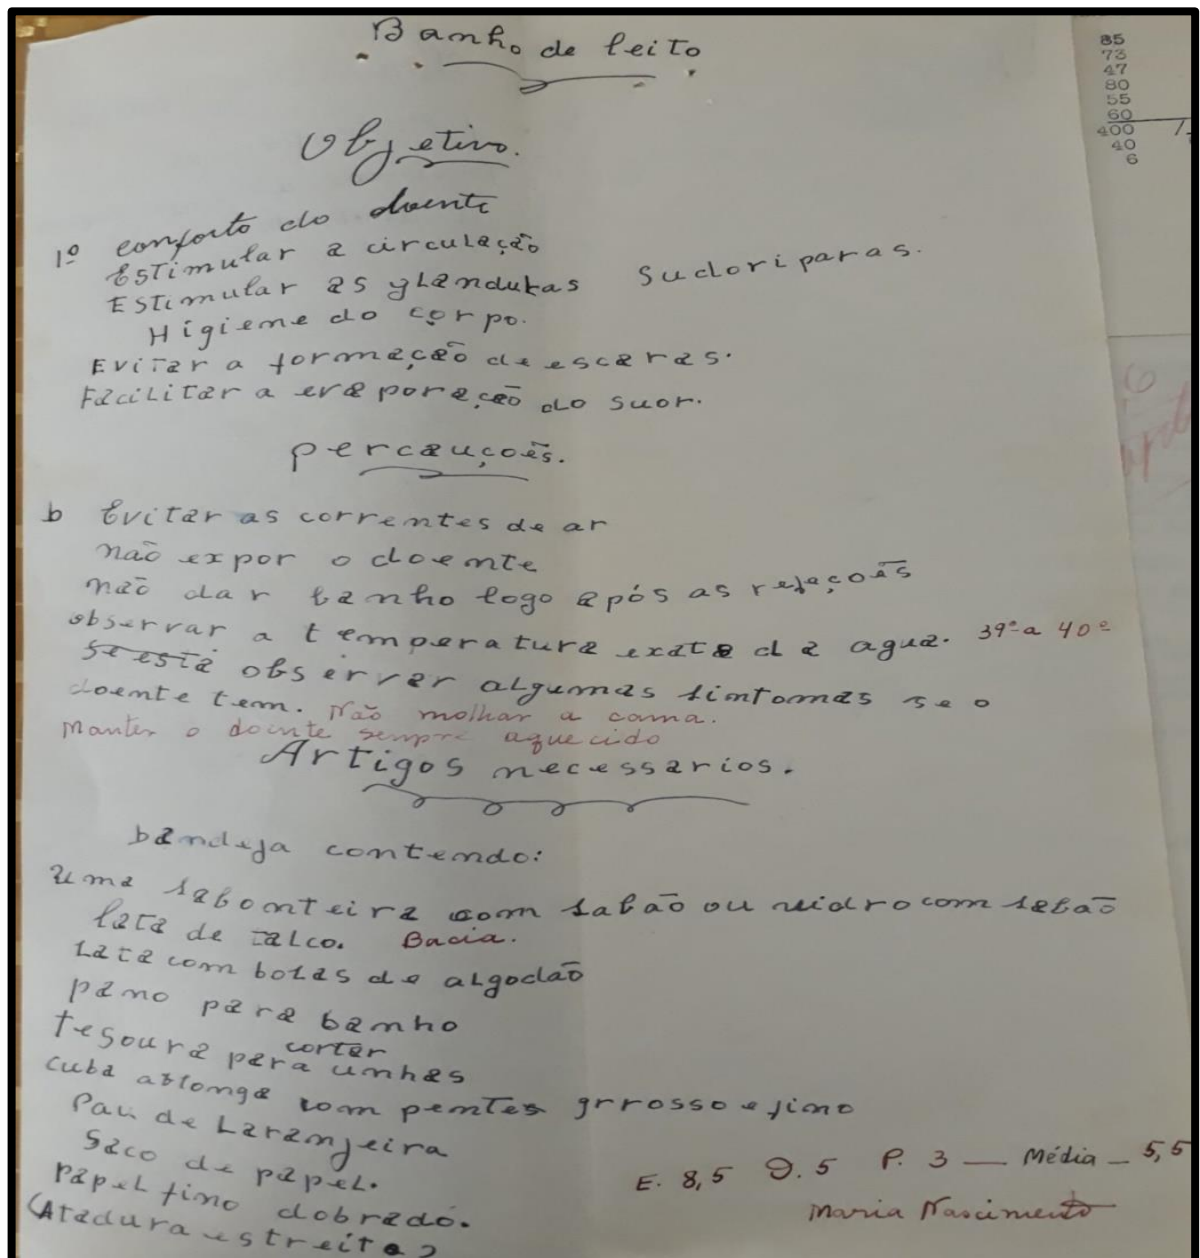 Banho de leito
Objetivo.
1º conforto do doente
Estimular a circulação
Estimular as glandulas Sudoriparas.
Higiene do corpo.
Evitar a formação de escaras.
Facilitar a evaporação do suor.
percauções.
b Evitar as correntes de ar
não expor o doente
não dar banho logo após as refeções
observar a temperatura exata da agua. 39º a 40º
se está observar algumas sintomas se o
doente tem. Não molhar a cama.
Manter o doente sempre aquecido
Artigos necessarios.
bandeja contendo:
uma sabonteira com sabão ou vidro com sabão
lata de talco. Bacia.
Lata com bolas de algodão
pano para banho
tesoura para cortar unhas
cuba ablonga com pentes grrosso e fino
Pau de Laranjeira
Saco de papel.
Papel fino dobrado.
(Atadura estreita)
E. 8,5 D. 5 P. 3 — Média — 5,5
Maria Nascimento
85
73
47
80
55
60
400
40
6